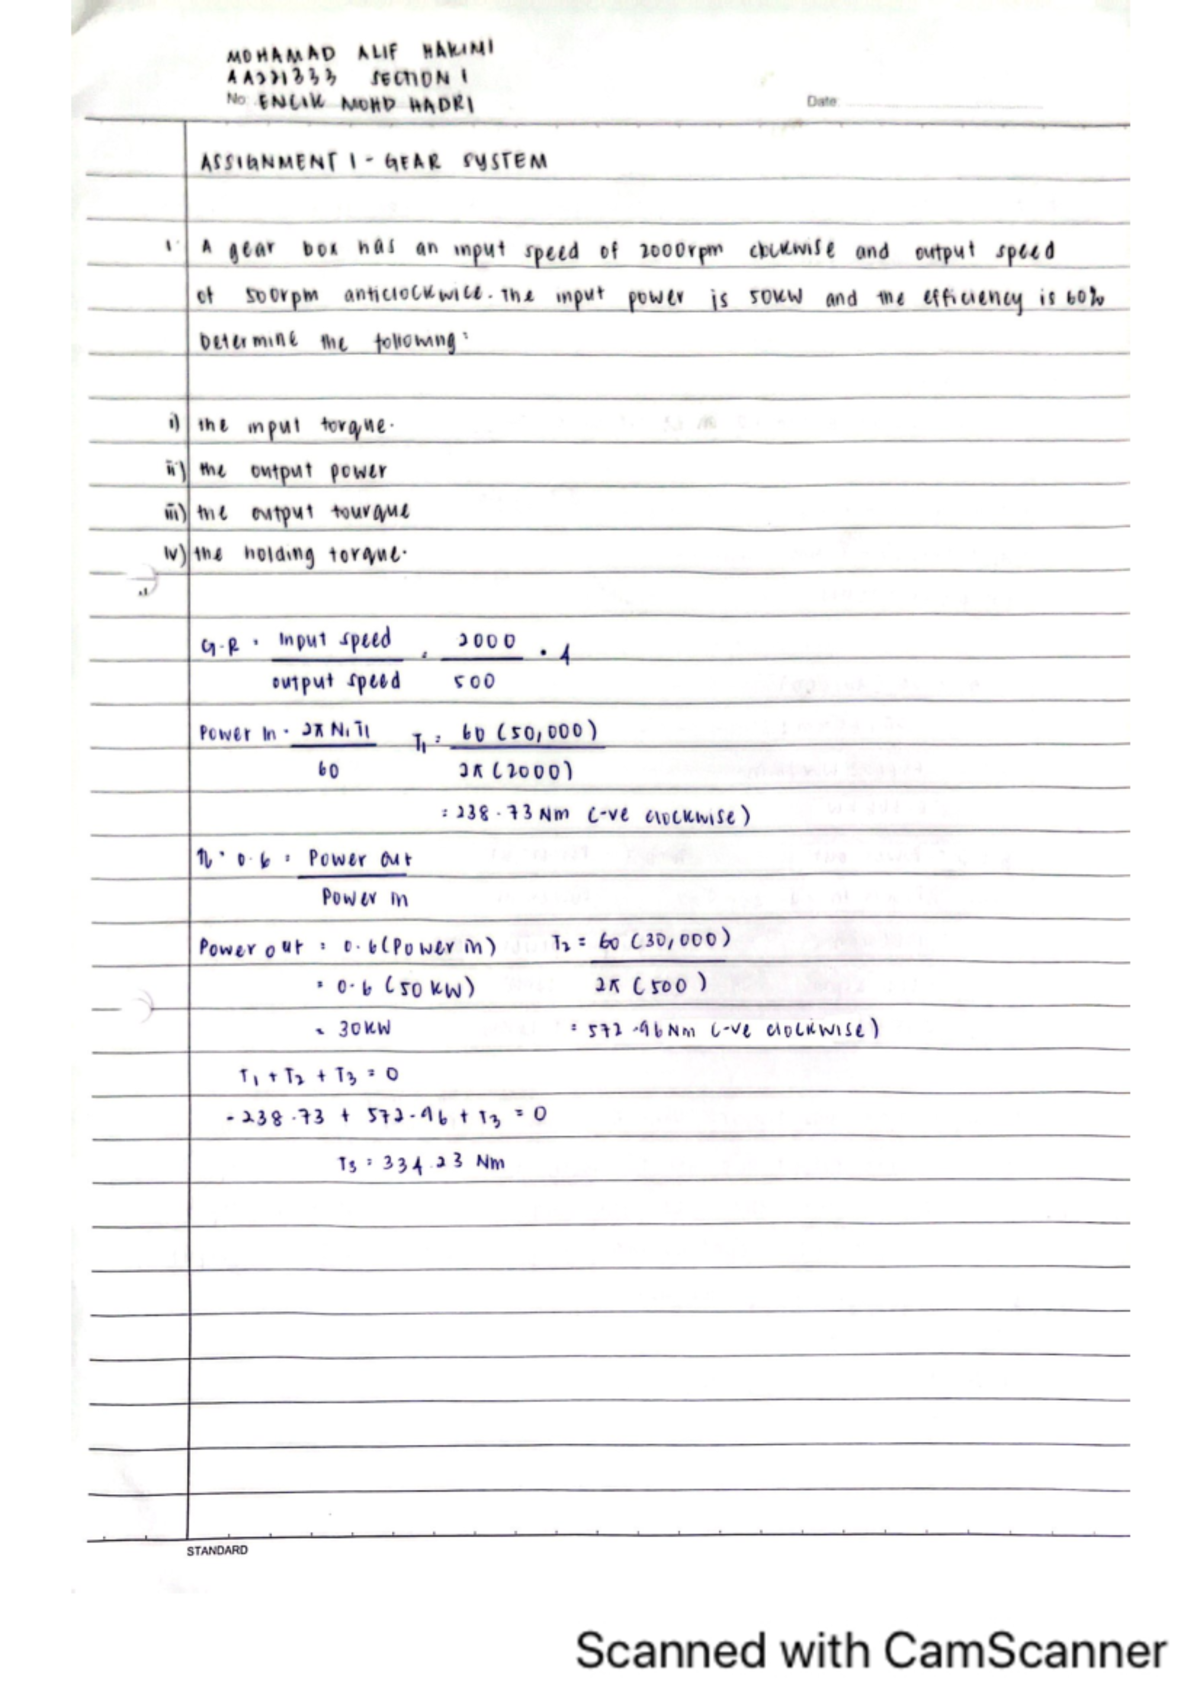 MOHAMAD ALIF HAKIMI
AA221333 SECTION 1
No. ENCIK MOHD HADRI
Date:
ASSIGNMENT 1 - GEAR SYSTEM
1. A gear box has an input speed of 2000rpm clockwise and output speed
of 500rpm anticlockwice. The input power is 50KW and the efficiency is 60%
Determine the following:
i) the input torque.
ii) the output power
iii) the output tourque
iv) the holding torque.
G.R = Input speed / output speed = 2000 / 500 = 4
Power In = 2π N₁ T₁ / 60 T₁ = 60 (50,000) / 2π (2000)
= 238.73 Nm (-ve clockwise)
η = 0.6 = Power out / Power in
Power out = 0.6 (Power in) T₂ = 60 (30,000) / 2π (500)
= 0.6 (50 KW)
= 30KW = 572.96 Nm (-ve clockwise)
T₁ + T₂ + T₃ = 0
- 238.73 + 572.96 + T₃ = 0
T₃ = 334.23 Nm
STANDARD
Scanned with CamScanner